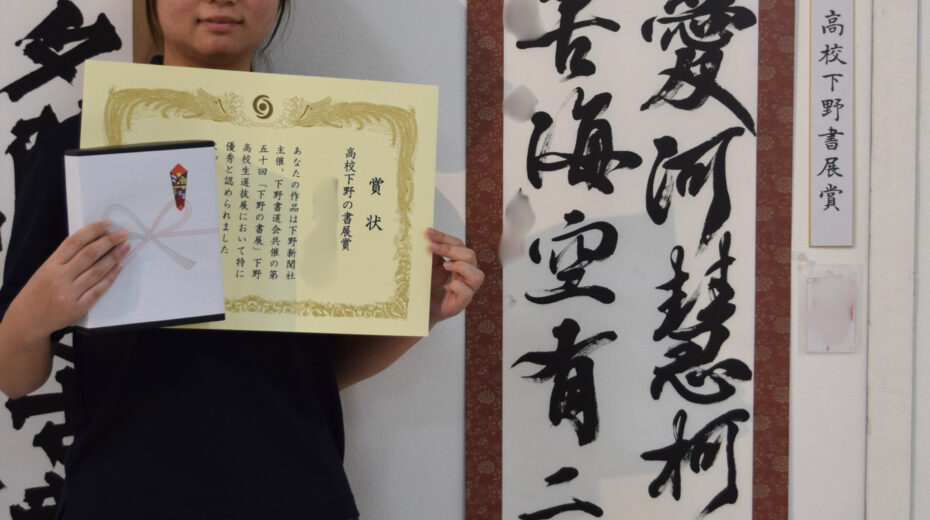 賞状
高校下野の書展賞
あなたの作品は下野新聞社
主催、下野書道会共催の第
五十回「下野の書展」下野
高校生選抜展において特に
優秀と認められました
愛河慧柯
苦海空有二
高校下野書展賞